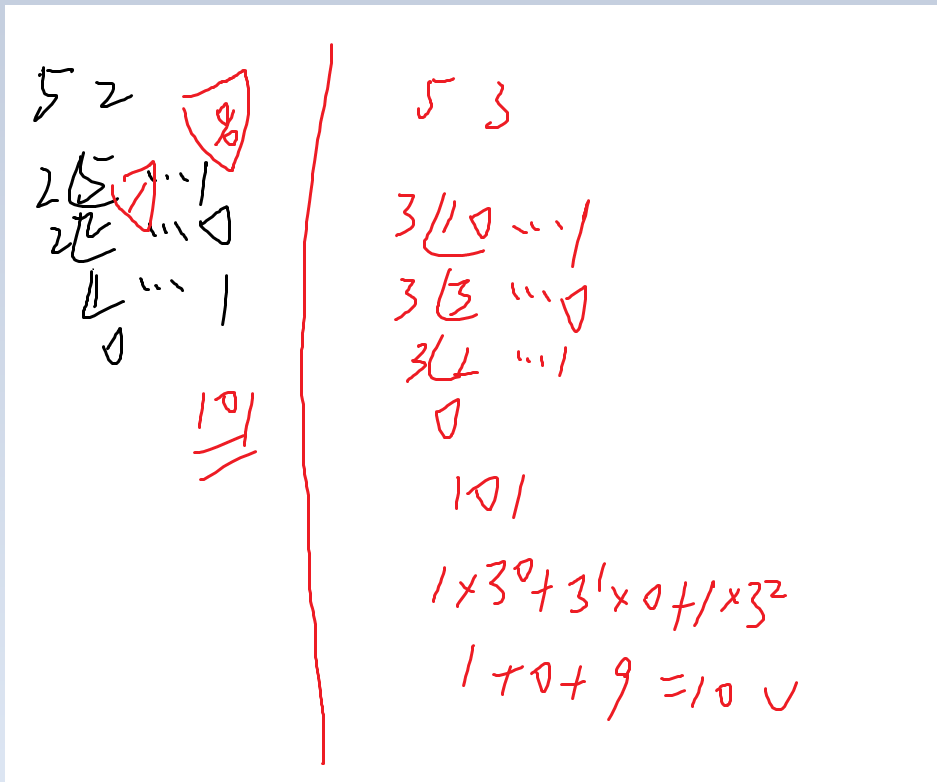 5 2
%
2 5 / ... 1
2 2 ... 0
1 ... 1
0
101
5 3
3 10 ... 1
3 3 ... 0
3 1 ... 1
0
101
1×3⁰+3¹×0+1×3²
1+0+9=10 ✓